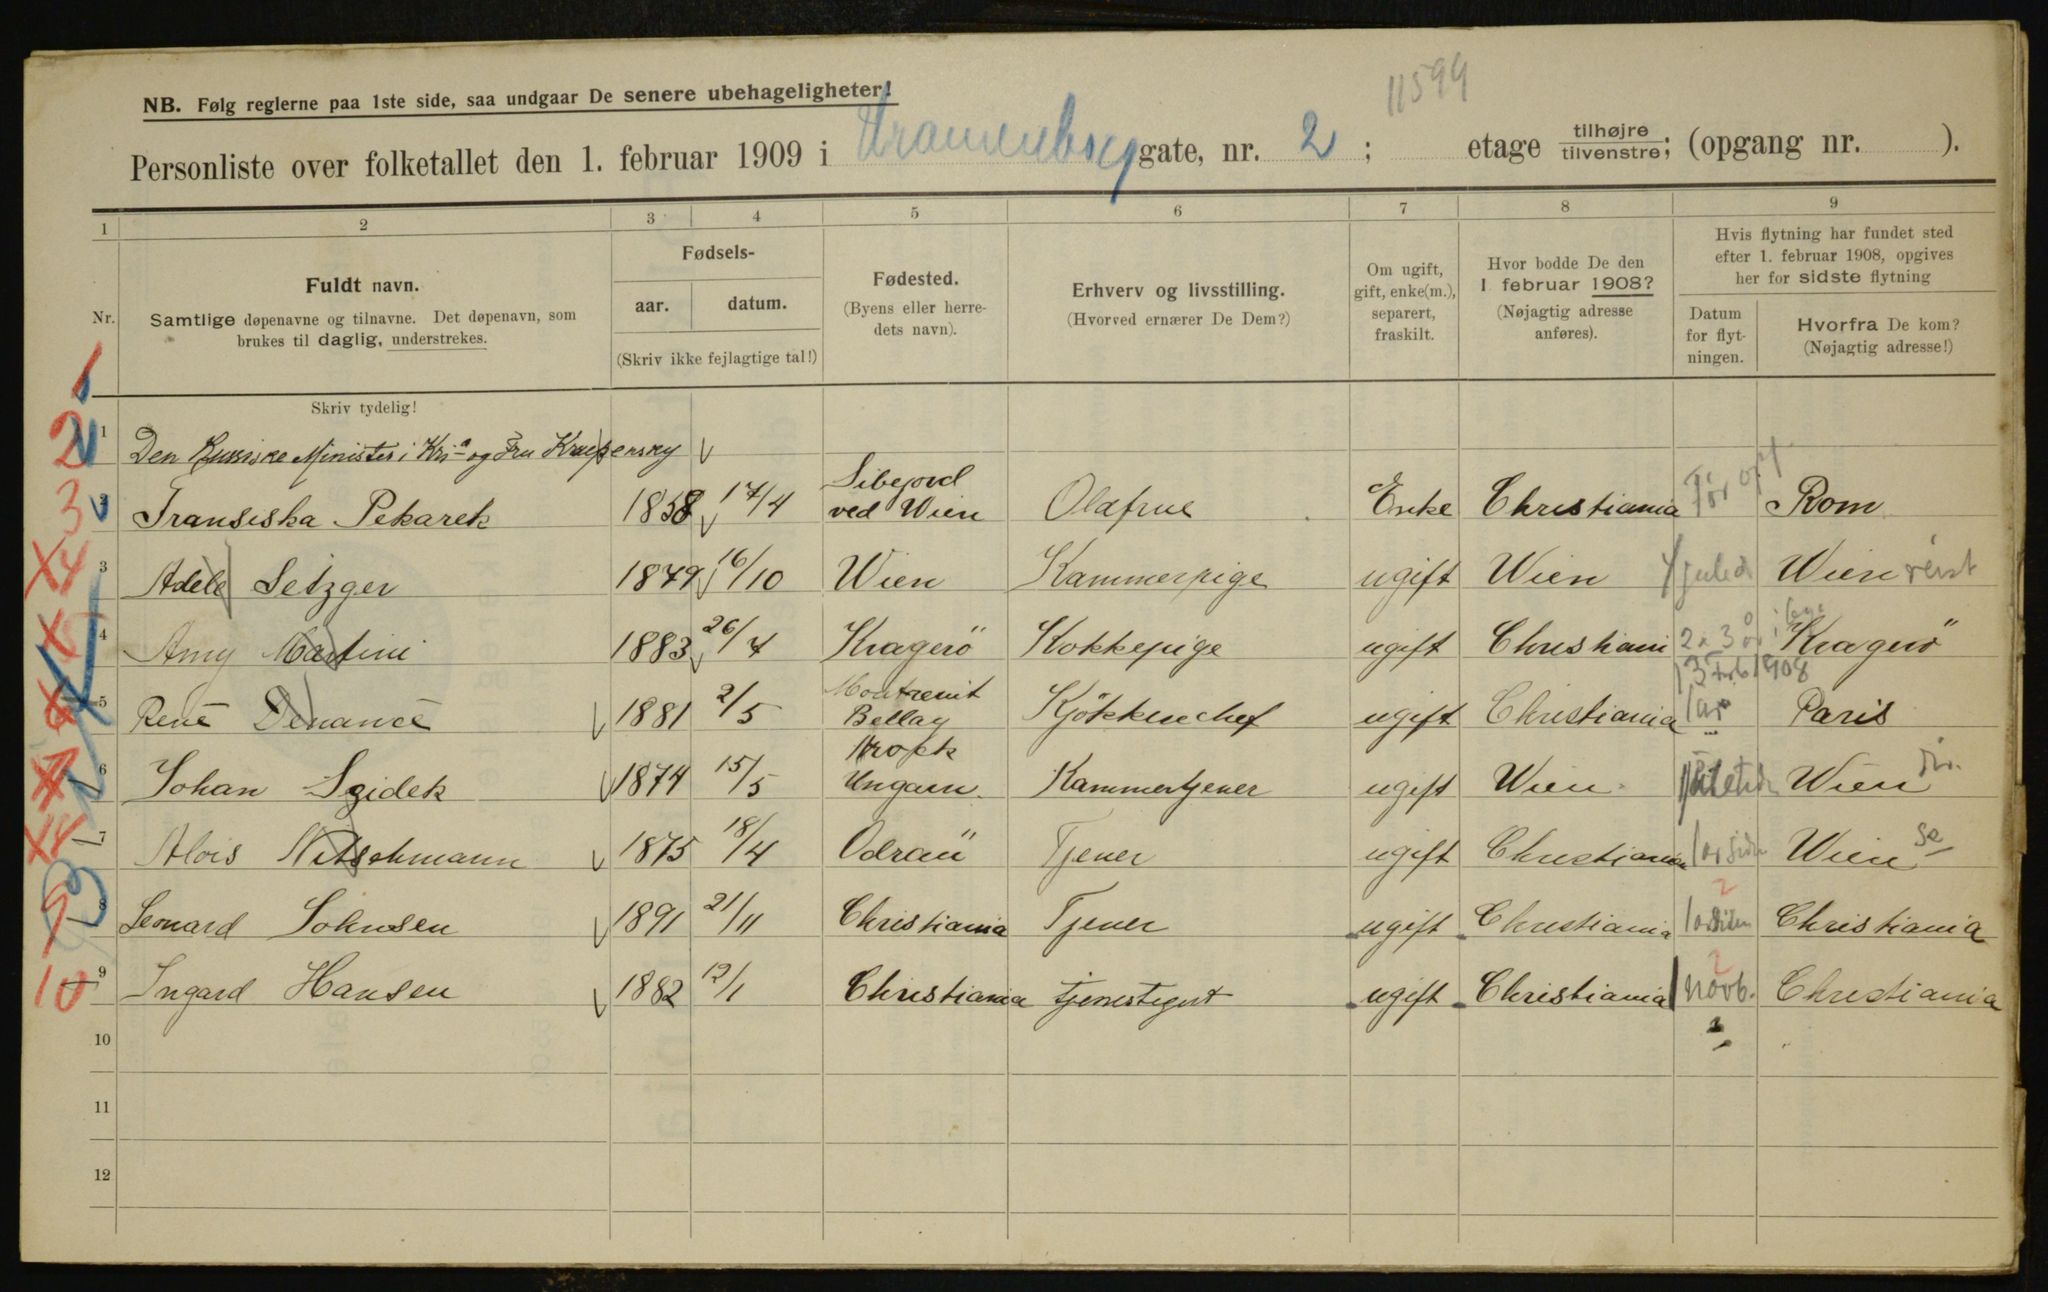 11599
NB. Følg reglerne paa 1ste side, saa undgaar De senere ubehageligheter!
Personliste over folketallet den 1. februar 1909 i gate, nr. 2 ; etage tilhøjre tilvenstre; (opgang nr. ).
1 2 3 4 5 6 7 8 9
Nr.
Fuldt navn.
Samtlige døpenavne og tilnavne. Det døpenavn, som
brukes til daglig, understrekes.
Fødsels-
aar. datum.
(Skriv ikke fejlagtige tal!)
Fødested.
(Byens eller herre-
dets navn).
Erhverv og livsstilling.
(Hvorved ernærer De Dem?)
Om ugift,
gift, enke(m.),
separert,
fraskilt.
Hvor bodde De den
1 februar 1908?
(Nøjagtig adresse
anføres).
Hvis flytning har fundet sted
efter 1. februar 1908, opgives
her for sidste flytning
Datum
for flyt-
ningen.
Hvorfra De kom?
(Nøjagtig adresse!)
Skriv tydelig!
1 Den Russiske Minister i Kra og Fru Krupensky
2 Fransiska Pekarek 1858 17/4 ved Wien Enke Christiania Rom
3 Adele Setzger 1879 16/10 Wien Kammerpige ugift Wien Wien reist
4 Amy Martini 1883 26/4 Kragerö Kokkepige ugift Christiani Kragerö
5 René Denancé 1881 2/5 Bellay Kjökkenchef ugift Christiania Paris
6 Johan Szidek 1874 15/5 Ungarn Kammertjener ugift Wien Wien
7 Alois Nitschmann 1875 18/4 Odraü Tjener ugift Christiania Wien
8 Leonard Johnsen 1891 21/11 Christiania Tjener ugift Christiania Christiania
9 Ingard Hansen 1882 12/1 Christiania ugift Christiania 1 novb. Christiania
10
11
12